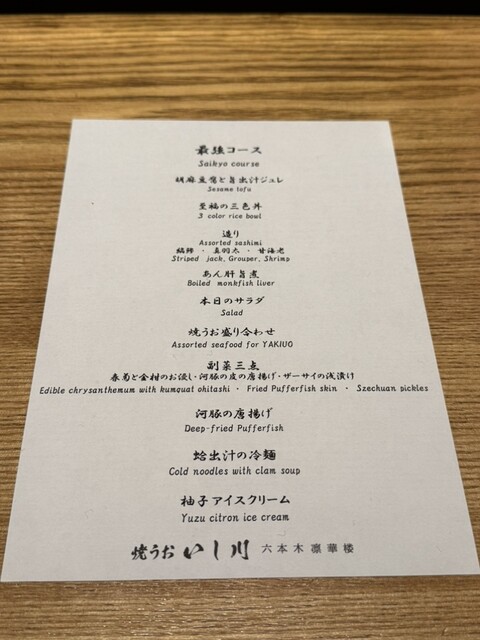 最強コース
Saikyo course
胡麻豆腐と旨出汁ジュレ
Sesame tofu
至福の三色丼
3 color rice bowl
造り
Assorted sashimi
縞鯵 ・ 真羽太 ・ 甘海老
Striped jack, Grouper, Shrimp
あん肝旨煮
Boiled monkfish liver
本日のサラダ
Salad
焼うお盛り合わせ
Assorted seafood for YAKIUO
副菜三点
春菊と金柑のお浸し・河豚の皮の唐揚げ・ザーサイの浅漬け
Edible chrysanthemum with kumquat ohitashi ・ Fried Pufferfish skin ・ Szechuan pickles
河豚の唐揚げ
Deep-fried Pufferfish
蛤出汁の冷麺
Cold noodles with clam soup
柚子アイスクリーム
Yuzu citron ice cream
焼うお いし川 六本木凛華楼